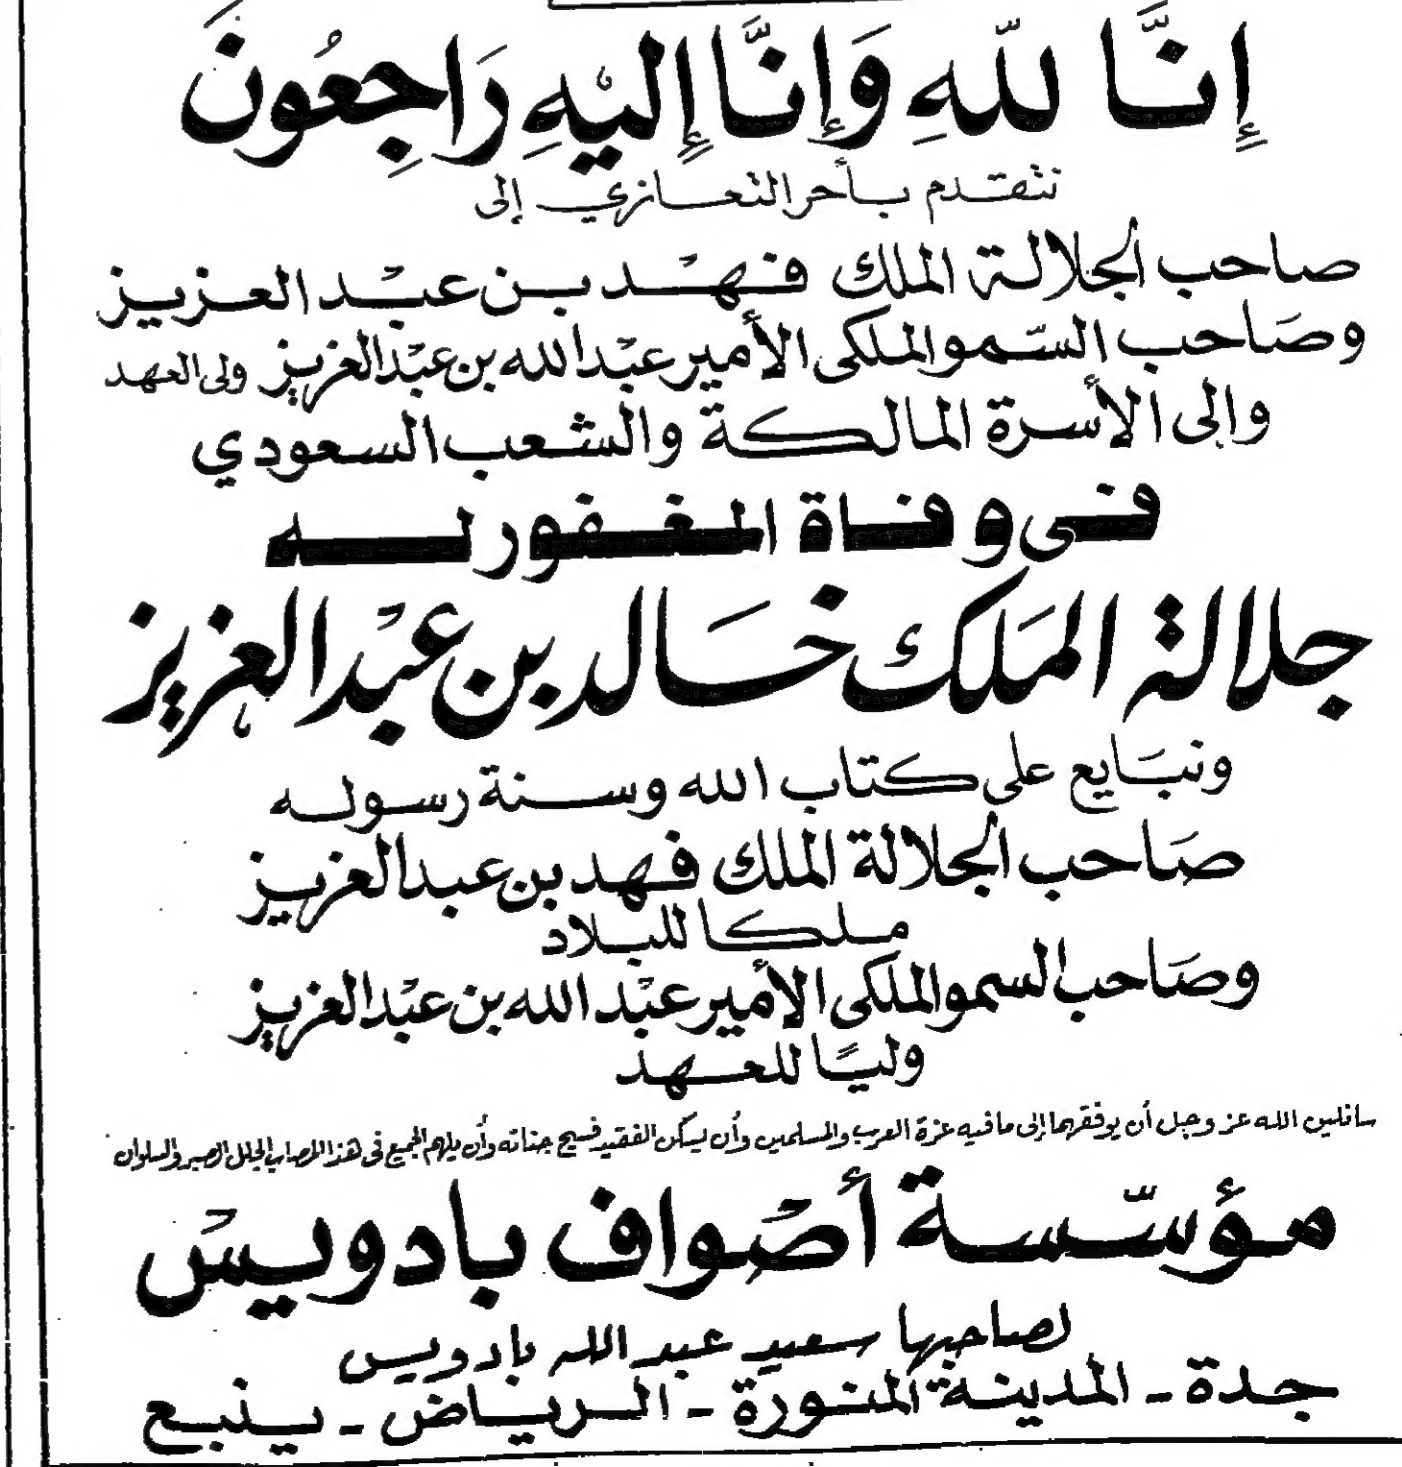 إِنَّا لِلّهِ وَإِنَّا إِلَيْهِ رَاجِعُونَ
نتقدم بأحر التعازي إلى
صاحب الجلالة الملك فهد بن عبد العزيز
وصاحب السّمو الملكى الأمير عبد الله بن عبد العزيز ولى العهد
وإلى الأسرة المالكة والشعب السعودي
فى وفاة المغفور له
جلالة الملك خالد بن عبد العزيز
ونبايع على كتاب الله وسنة رسوله
صاحب الجلالة الملك فهد بن عبد العزيز
ملكا للبلاد
وصاحب السمو الملكى الأمير عبد الله بن عبد العزيز
وليًا للعهد
سائلين الله عز وجل أن يوفقهما إلى ما فيه عزة العرب والمسلمين وأن يسكن الفقيد فسيح جناته وأن يلهم الجميع فى هذا المصاب الجلل الصبر والسلوان
مؤسّسة أصواف بادويس
لصاحبها سعيد عبد الله بادويس
جدة - المدينة المنورة - الرياض - ينبع